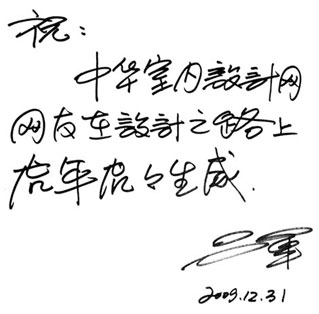 祝：
中华室内設計网
网友在設計之路上
虎年虎々生威.
2009.12.31